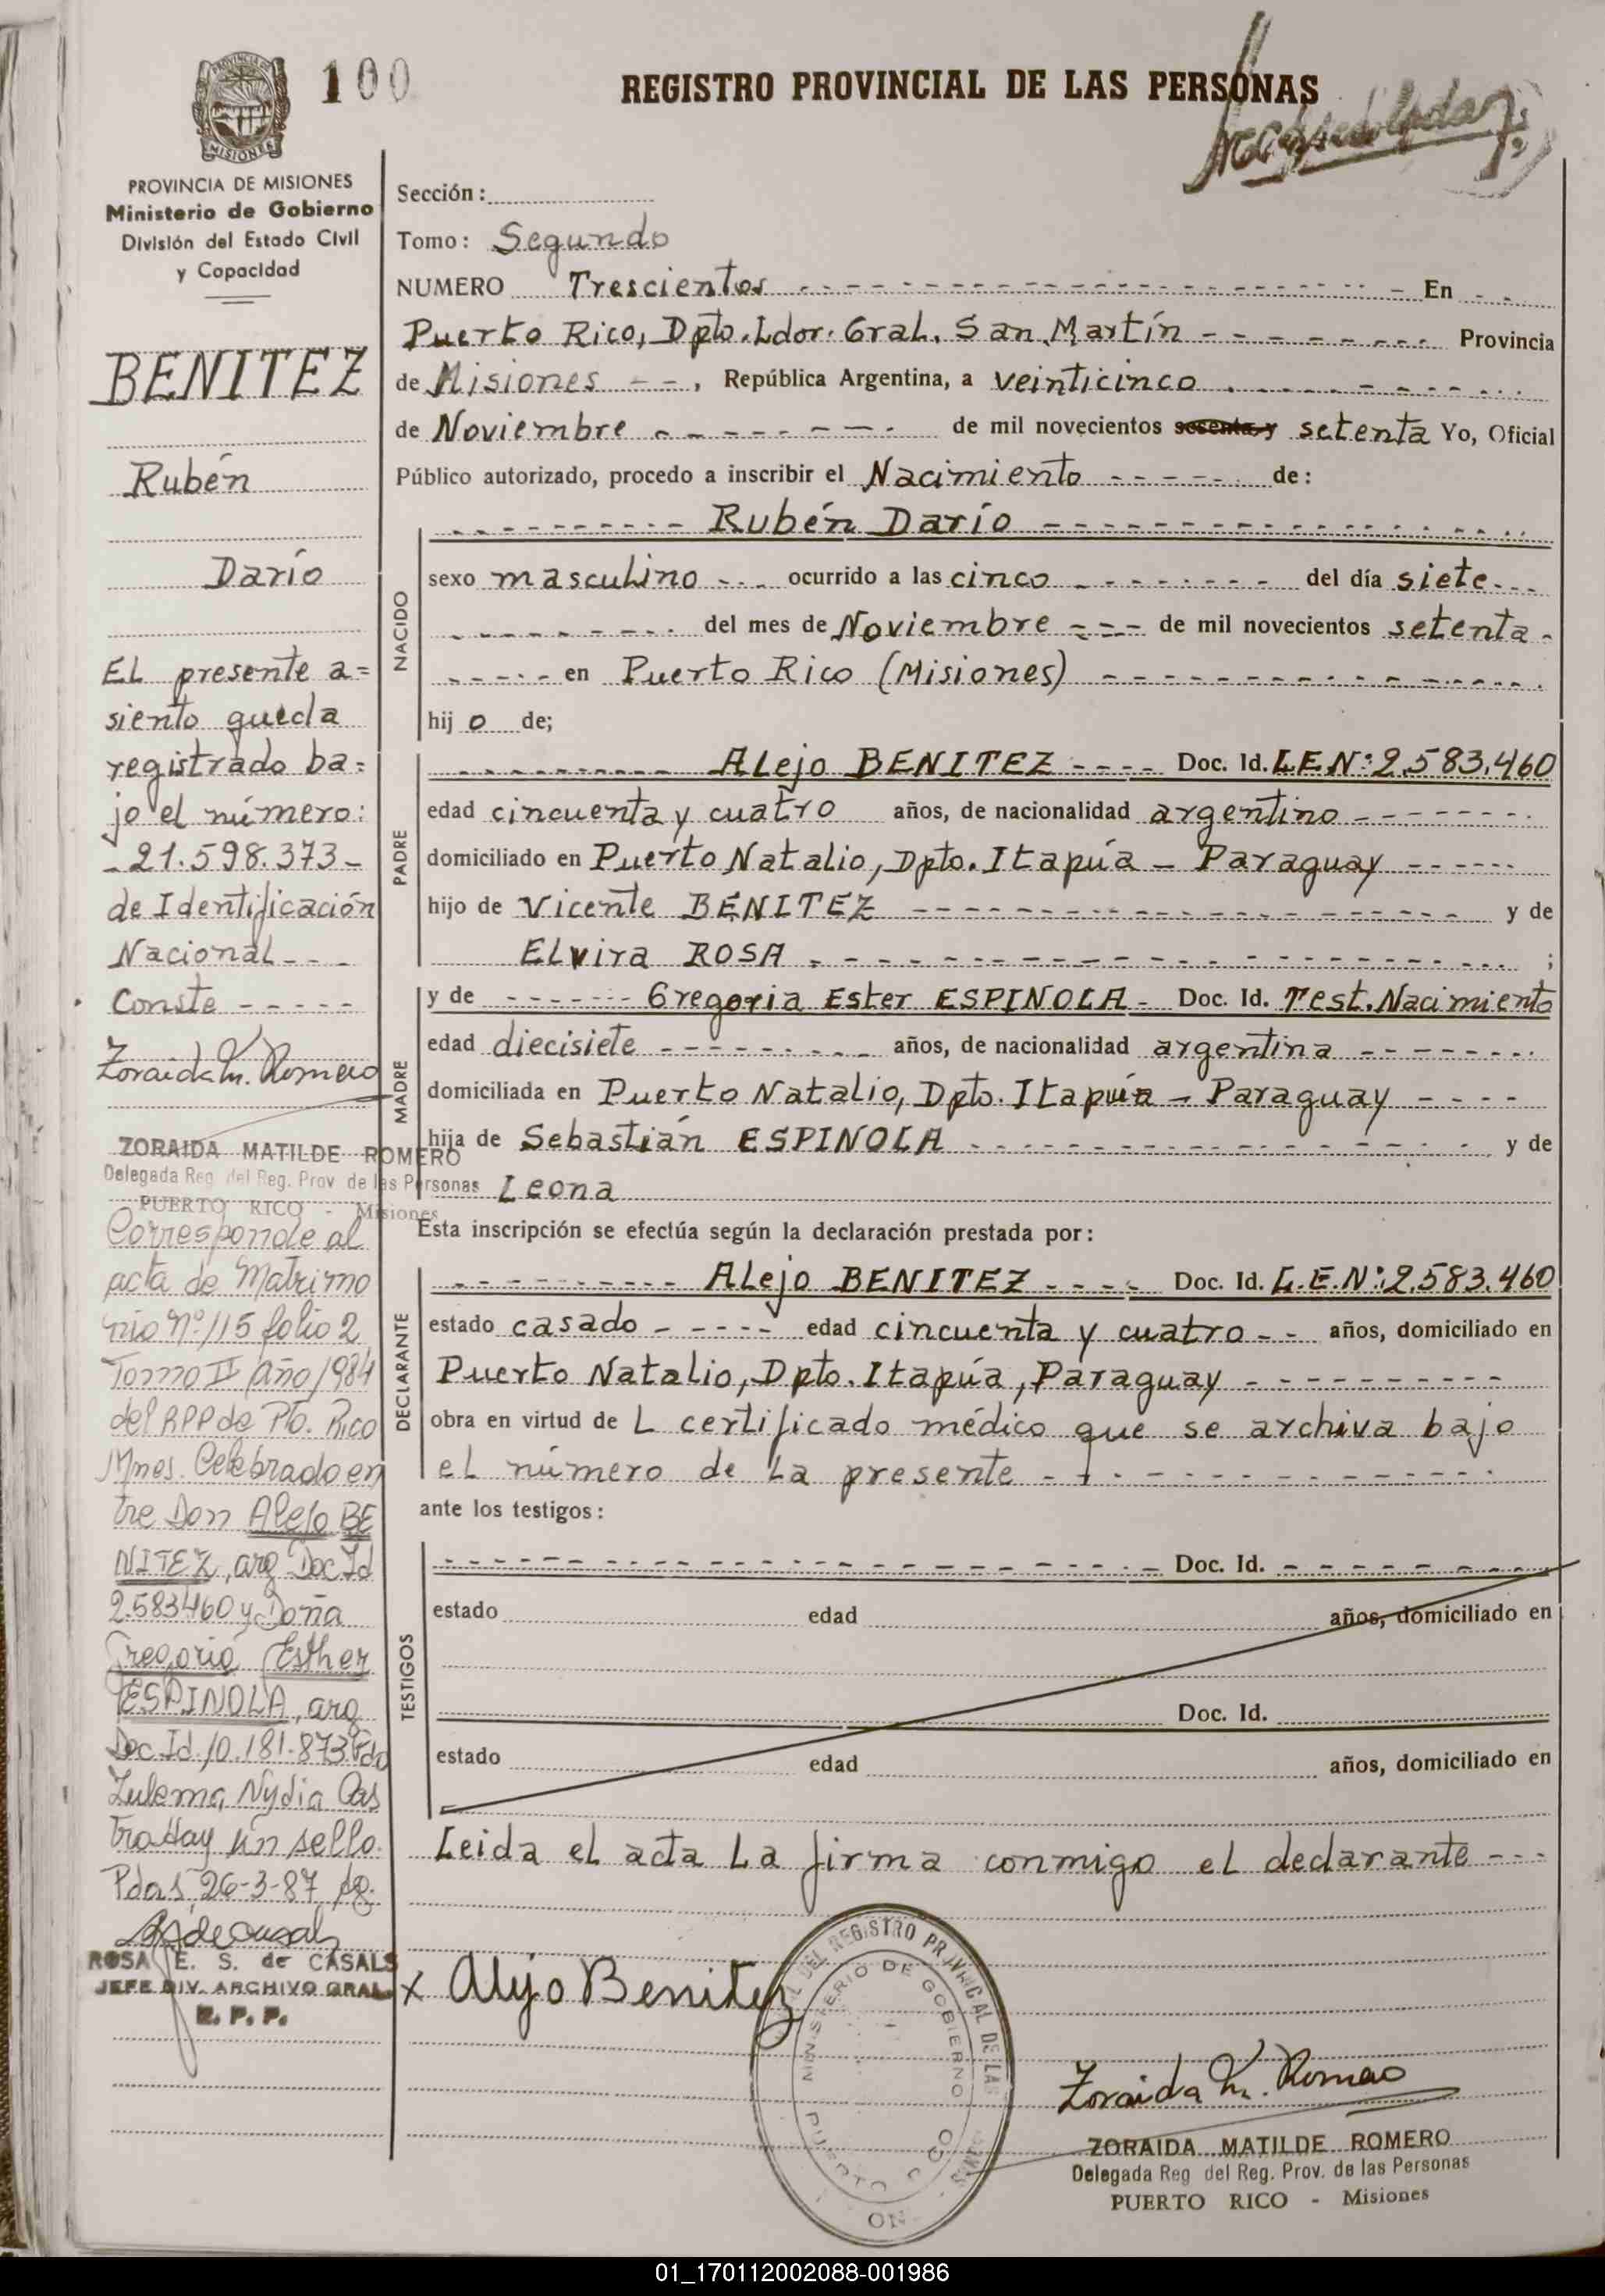 100
REGISTRO PROVINCIAL DE LAS PERSONAS
MISIONES
PROVINCIA DE MISIONES
Ministerio de Gobierno
División del Estado Civil
y Capacidad
BENITEZ
Rubén
Darío
EL presente a=
siento queda
registrado ba=
jo el número:
-21.598.373-
de Identificación
Nacional - - -
Conste - - - - -
Zoraida M. Romero
ZORAIDA MATILDE ROMERO
Delegada Reg. del Reg. Prov. de las Personas
PUERTO RICO - Misiones
Corresponde al
acta de Matrimo
nio Nº 115 folio 2
Tomo II año 1984
del RPP de Pto. Rico
Mnes. Celebrado en
tre Don Alejo BE
NITEZ, arg Doc Id
2.583460 y Doña
Gregoria Esther
ESPINOLA, arg
Doc Id 10.181.873 Fdo
Zulema Nydia Cas
tro Hay un sello.
Pdas 26-3-87
ROSA E. S. de CASALS
JEFE DIV. ARCHIVO GRAL.
R. P. P.
Sección:
Tomo: Segundo
NUMERO Trescientos - - - En - -
Puerto Rico, Dpto. Ldor. Gral. San Martín - - - Provincia
de Misiones - - , República Argentina, a veinticinco - - -
de Noviembre - - - de mil novecientos sesenta y setenta Yo, Oficial
Público autorizado, procedo a inscribir el Nacimiento - - - de:
NACIDO
- - - Rubén Darío - - -
sexo masculino - - - ocurrido a las cinco - - - del día siete - - -
- - - del mes de Noviembre - - - de mil novecientos setenta -
- - - en Puerto Rico (Misiones) - - -
hij o de;
PADRE
- - - Alejo BENITEZ - - - Doc. Id. L.E.Nº: 2.583.460
edad cincuenta y cuatro años, de nacionalidad argentino - - -
domiciliado en Puerto Natalio, Dpto. Itapúa - Paraguay - - -
hijo de Vicente BENITEZ - - - y de
Elvira ROSA - - - ;
MADRE
y de - - - Gregoria Ester ESPINOLA - Doc. Id. Test. Nacimiento
edad diecisiete - - - años, de nacionalidad argentina - - -
domiciliada en Puerto Natalio, Dpto. Itapúa - Paraguay - - -
hija de Sebastián ESPINOLA - - - y de
Leona
Esta inscripción se efectúa según la declaración prestada por:
DECLARANTE
- - - Alejo BENITEZ - - - Doc. Id. L.E.Nº: 2.583.460
estado casado - - - edad cincuenta y cuatro - - años, domiciliado en
Puerto Natalio, Dpto. Itapúa, Paraguay - - -
obra en virtud de L certificado médico que se archiva bajo
el número de la presente - - -
ante los testigos:
TESTIGOS
- - - Doc. Id. - - -
estado edad años, domiciliado en
Doc. Id.
estado edad años, domiciliado en
Leida el acta la firma conmigo el declarante - - -
x Alejo Benitez
DEL REGISTRO PROVINCIAL DE LAS
MINISTERIO DE GOBIERNO
PUERTO
Zoraida M. Romero
ZORAIDA MATILDE ROMERO
Delegada Reg. del Reg. Prov. de las Personas
PUERTO RICO - Misiones
01_170112002088-001986